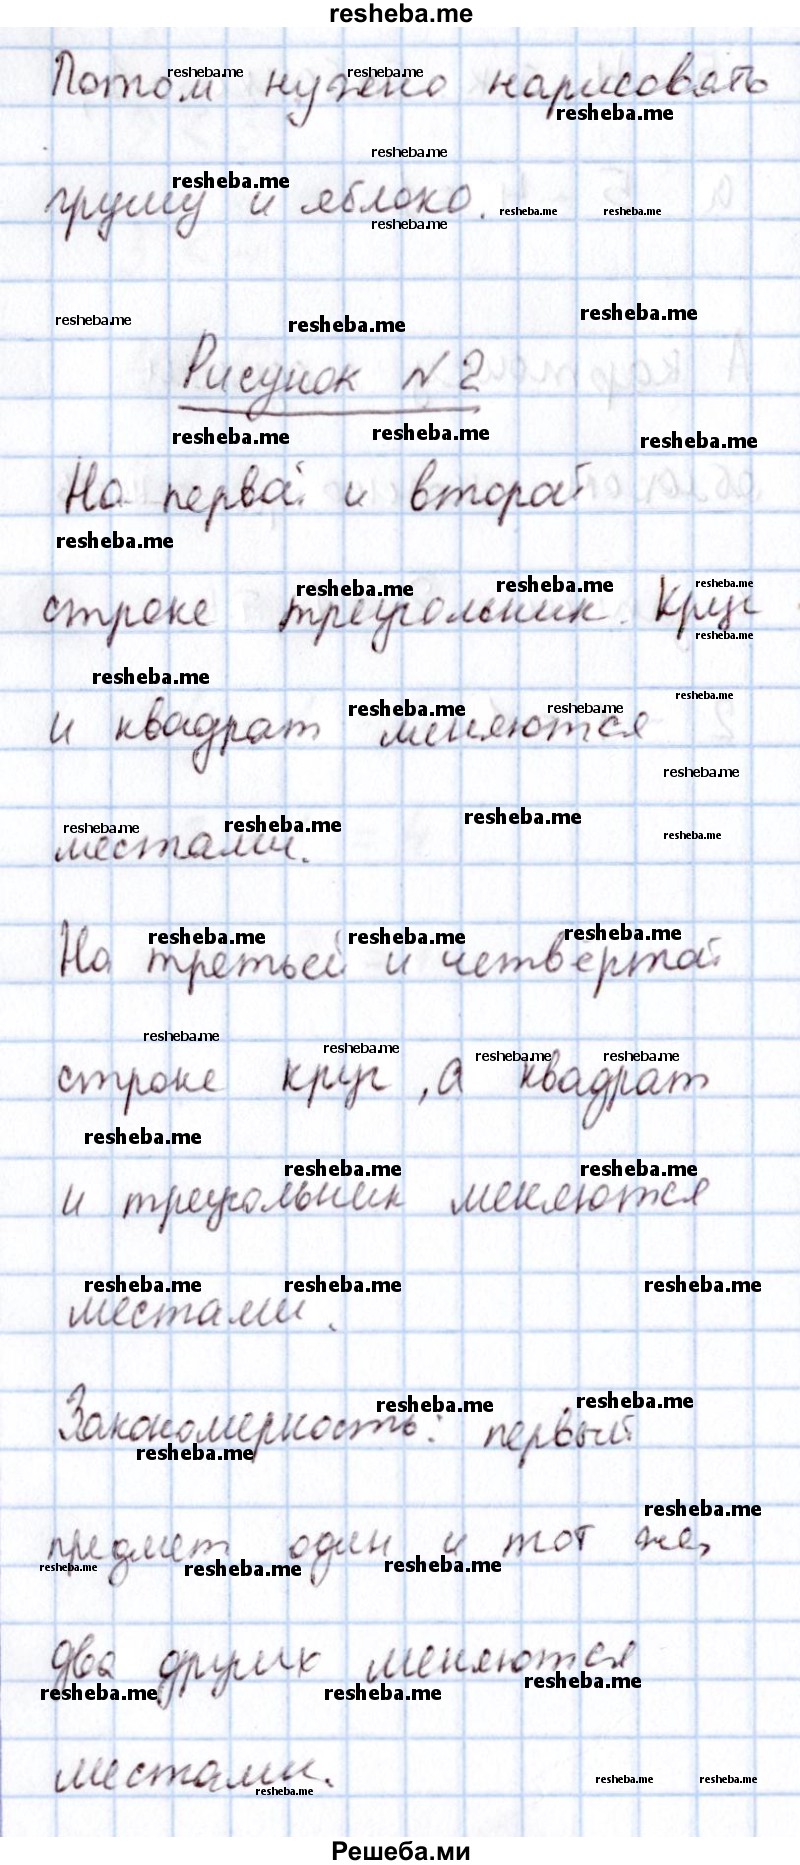 resheba.me
Потом нужно нарисовать
грушу и яблоко.
Рисунок №2
На первой и второй
строке треугольник. Круг
и квадрат меняются
местами.
На третьей и четвёртой
строке круг, а квадрат
и треугольник меняются
местами.
Закономерность: первый
предмет один и тот же,
два других меняются
местами.
Решеба.ми